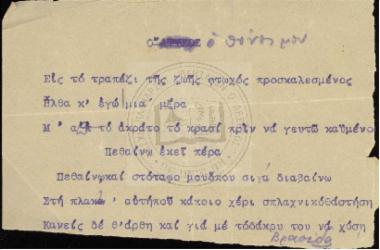 Ο ὁ πόνος μου
Εἰς τό τραπέζι τῆς ζωῆς φτωχός προσκαλεσμένος
Ἦλθα κ' ἐγώ μιά μέρα
Μ' τό ἄκρατο τό κρασί πρίν νά γευτῶ καϋμένος
Πεθαίνω ἐκεῖ πέρα
Πεθαίνωκαί στόταφο μούδπου σιγά διαβαίνω
Στή ' αὐτήποῦ κάποιο χέρι σπλαχνικόθάστήση
Κανείς δέ θ'ἄρθη καί γιά μέ τόδάκρυ του νά χύση